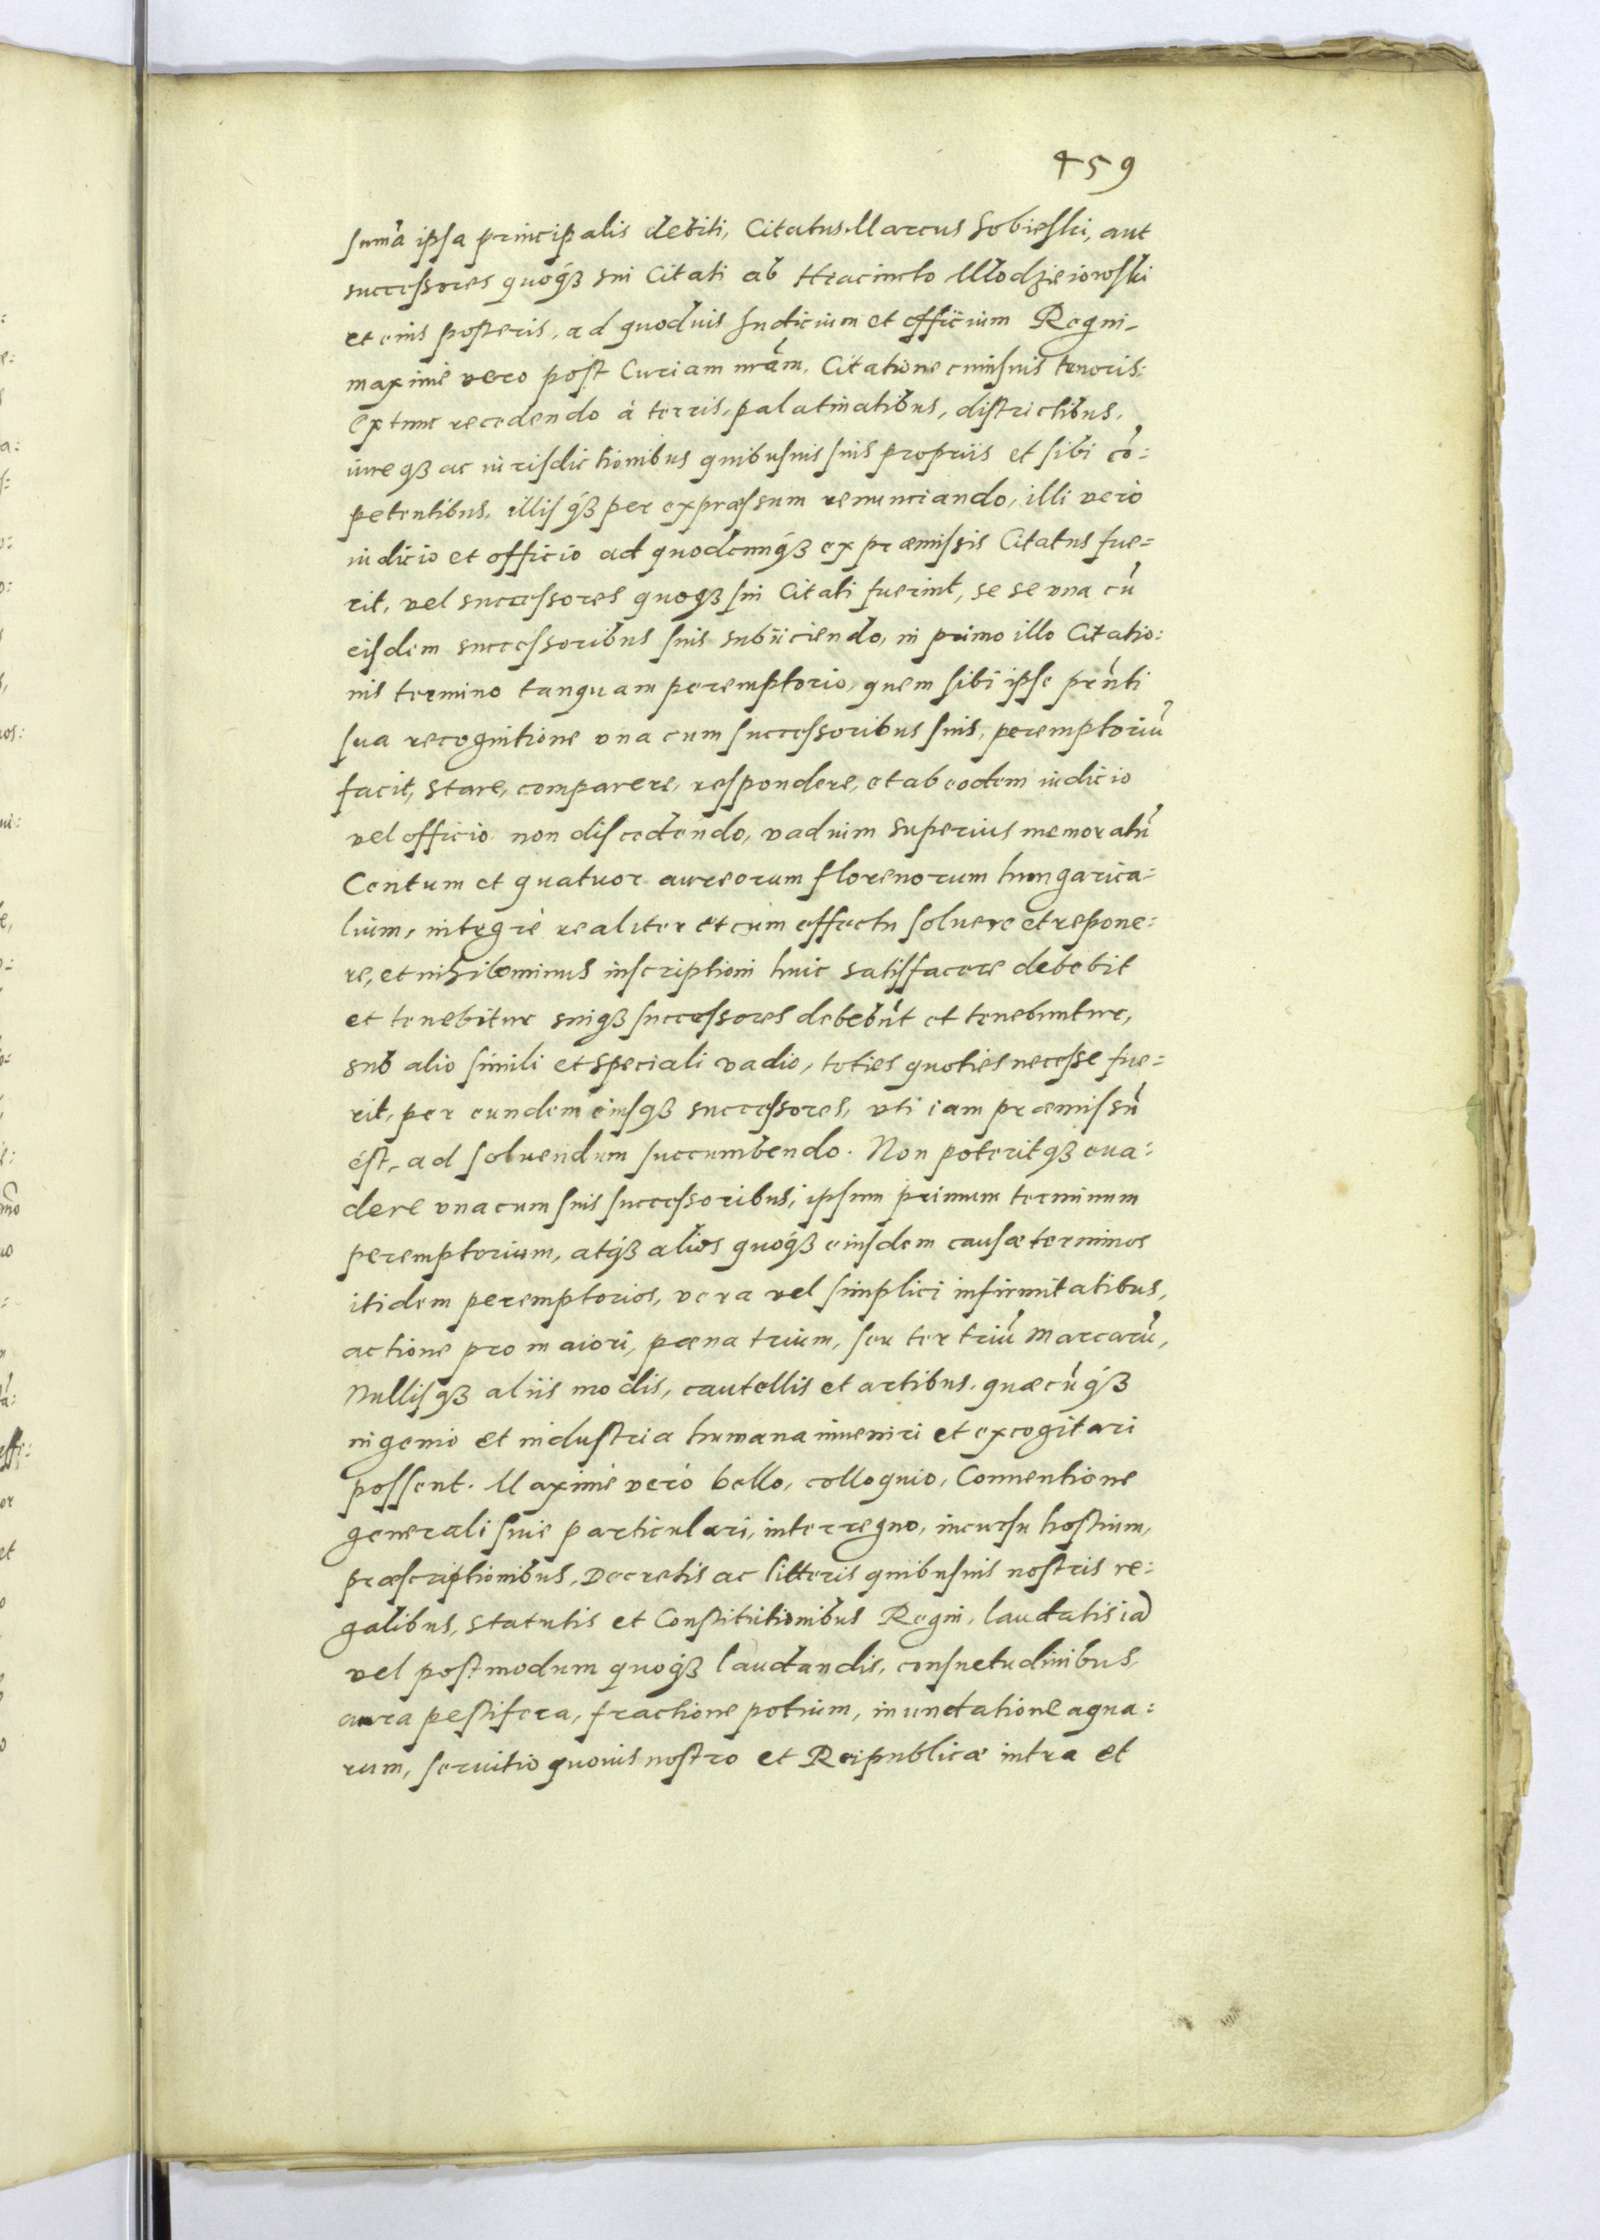 459
sum̃a ipsa principalis debiti, Citatus Marcus Sobieski, aut
successores quoq́ꝫ sui Citati ab Hyacincto Młodzieiowski
et eius posteris, ad quoduis Iudicium et officium Regni,
maxime vero post Curiam nrãm, Citatione cuiusuis tenoris:
extunc recedendo à terris, palatinatibus, districtibus,
iureqꝫ ac iurisdictionibus quibusuis suis proprijs et sibi cõ:
petentibus, illisq́ꝫ per expræssum renunciando, illi verò
iudicio et officio ad quodcunq́ꝫ ex præmissis Citatus fue=
rit, vel successores quoqꝫ sui Citati fuerint, se se vna cũ
eisdem successoribus suis subijciendo, in primo illo Citatio:
nis termino tanquam peremptorio, quem sibi ipse prñti
sua recognitione vna cum successoribus suis, peremptoriũ
facit, stare, comparere, respondere, et ab eodem iudicio
vel officio non discedendo, vadium superius memoratũ
Centum et quatuor aureorum florenorum hungarica=
lium, integrè realiter et cum effectu soluere et repone:
re, et nihilominus inscriptioni huic satisfacere debebit
et tenebitur suiqꝫ successores debebũt et tenebuntur,
sub alio simili et speciali vadio, toties quoties necesse fue=
rit, per eundem eiusqꝫ successores, vti iam præmissũ
est, ad soluendum succumbendo. Non poteritqꝫ eua:
dere vna cum suis successoribus, ipsum primum terminum
peremptorium, atq́ꝫ alios quoq́ꝫ eiusdem causæ terminos
itidem peremptorios, vera vel simplici infirmitatibus,
actione pro maiori, pæna trium, seu ter triũ marcarũ,
Nullisqꝫ alijs modis, cautellis et artibus, quæcũq́ꝫ
ingenio et industria humana inueniri et excogitari
possent. Maximè verò bello, colloquio, Conuentione
generali siue particulari, interregno, incursu hostium,
præscriptionibus, Decretis ac litteris quibusuis nostris re:
galibus, statutis et Constitutionibus Regni, laudatis iã
vel postmodum quoq́ꝫ laudandis, consuetudinibus,
aura pestifera, fractione potium, inundatione aqua:
rum, seruitio quouis nostro et Reipublicæ intra et